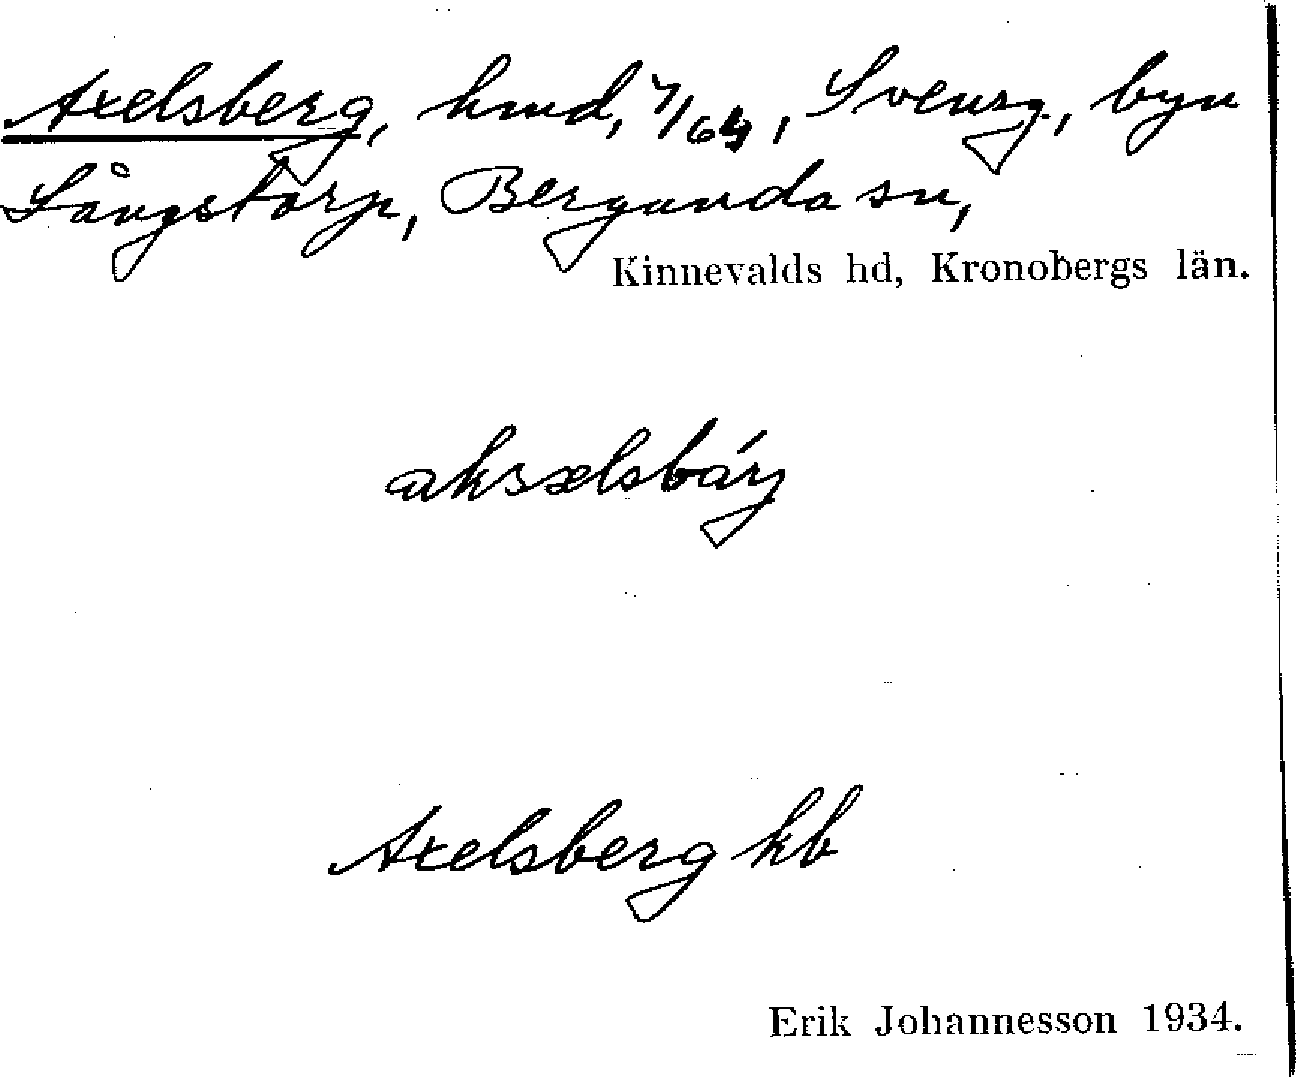 Axelsberg, hmd, 7/64, Svensg., byn
Långstorp, Bergunda sn,
Kinnevalds hd, Kronobergs län.
aksælsbáry
Axelsberg kb
Erik Johannesson 1934.